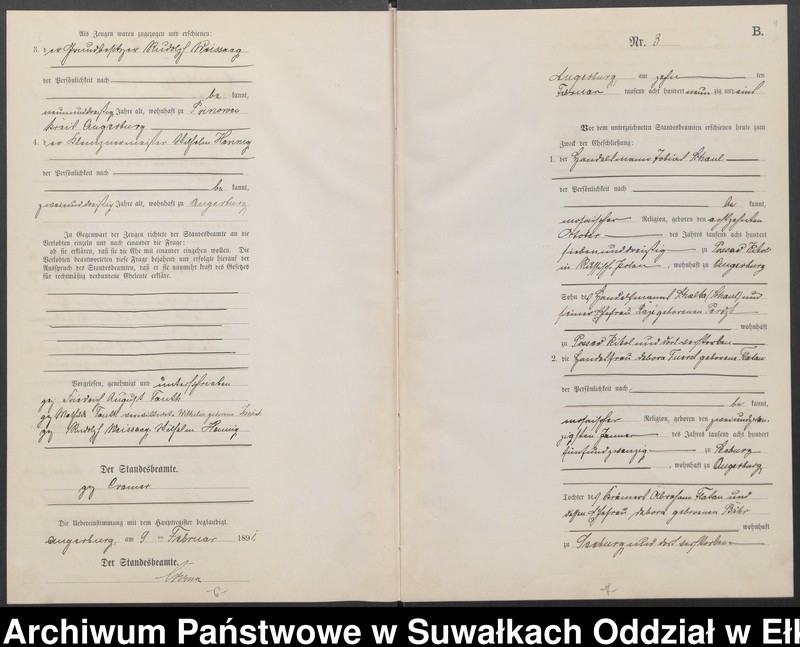 Als Zeugen waren zugezogen und erschienen:
3. der Grundbesitzer Rudolph Meissaag
der Persönlichkeit nach
be kannt,
neununddreißig Jahre alt, wohnhaft zu Prinowen
Kreis Angerburg
4. der Klempnermeister Wilhelm Hennig
der Persönlichkeit nach
be kannt,
zweiunddreißig Jahre alt, wohnhaft zu Angerburg
In Gegenwart der Zeugen richtete der Standesbeamte an die
Verlobten einzeln und nach einander die Frage:
ob sie erklären, daß sie die Ehe mit einander eingehen wollen. Die
Verlobten beantworteten diese Frage bejahend und erfolgte hierauf der
Ausspruch des Standesbeamten, daß er sie nunmehr kraft des Gesetzes
für rechtmäßig verbundene Eheleute erkläre.
Vorgelesen, genehmigt und unterschrieben
gez Friedrich August Pauth
gez Mathilde Pauth verwittwete Wilhelm geborene
gez Rudolph Meissaag. Wilhelm Hennig
Der Standesbeamte.
gez Cramer
Die Uebereinstimmung mit dem Hauptregister beglaubigt.
Angerburg, am 9 ten Februar 1891.
Der Standesbeamte.
-6-
B.
Nr. 3
Angerburg, am zehn ten
Februar tausend acht hundert neun zig und eins
Vor dem unterzeichneten Standesbeamten erschienen heute zum
Zweck der Eheschließung:
1. der Handelsmann Tobias Skaul
der Persönlichkeit nach
be kannt,
mosaischer Religion, geboren den achtzehnten
Oktober des Jahres tausend acht hundert
siebenunddreißig zu
in Russisch Polen, wohnhaft zu Angerburg
Sohn des Handelsmanns und
seiner Ehefrau geborenen
wohnhaft
zu und dort verstorben
2. die Handelsfrau Debora geborene Flatau
der Persönlichkeit nach
be kannt,
mosaischer Religion, geboren den zweiundzwan-
zigsten Januar des Jahres tausend acht hundert
fünfundzwanzig zu
, wohnhaft zu Angerburg
Tochter des Krämers Abraham Flatau und
dessen Ehefrau, Debora geborenen Bähr
wohnhaft
zu und dort verstorben
-7-
Archiwum Państwowe w Suwałkach Oddział w Ełk